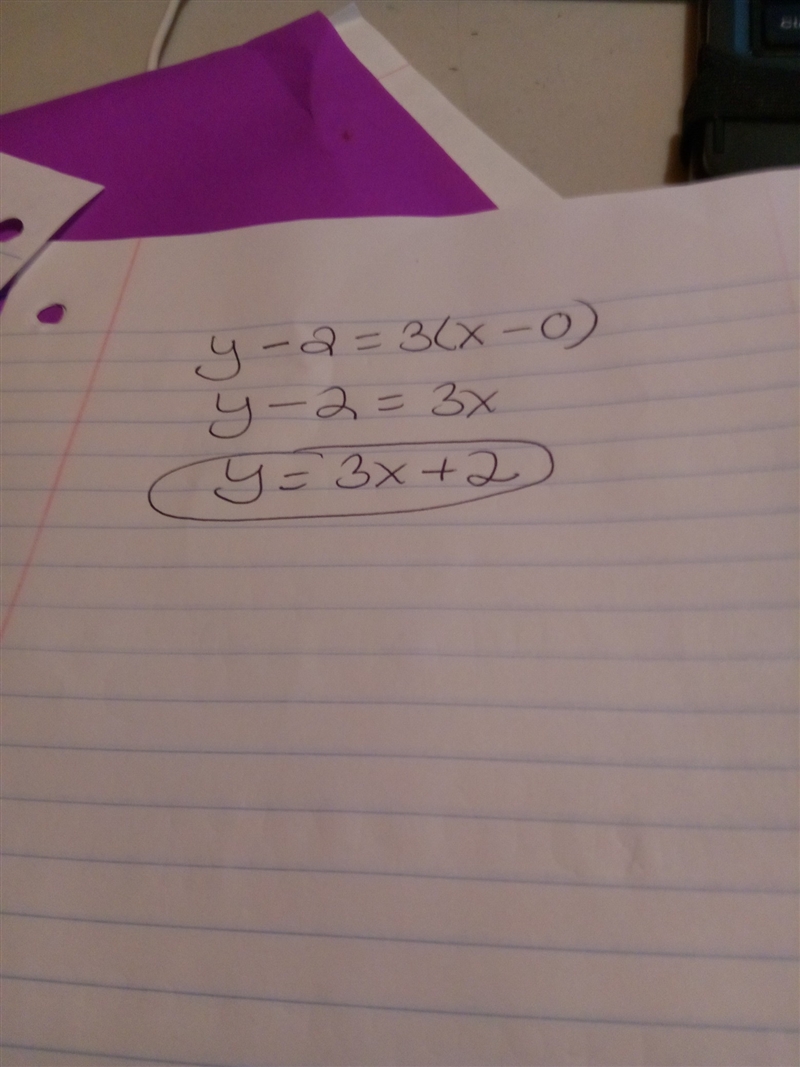 y - 2 = 3(x - 0)
y - 2 = 3x
y = 3x + 2